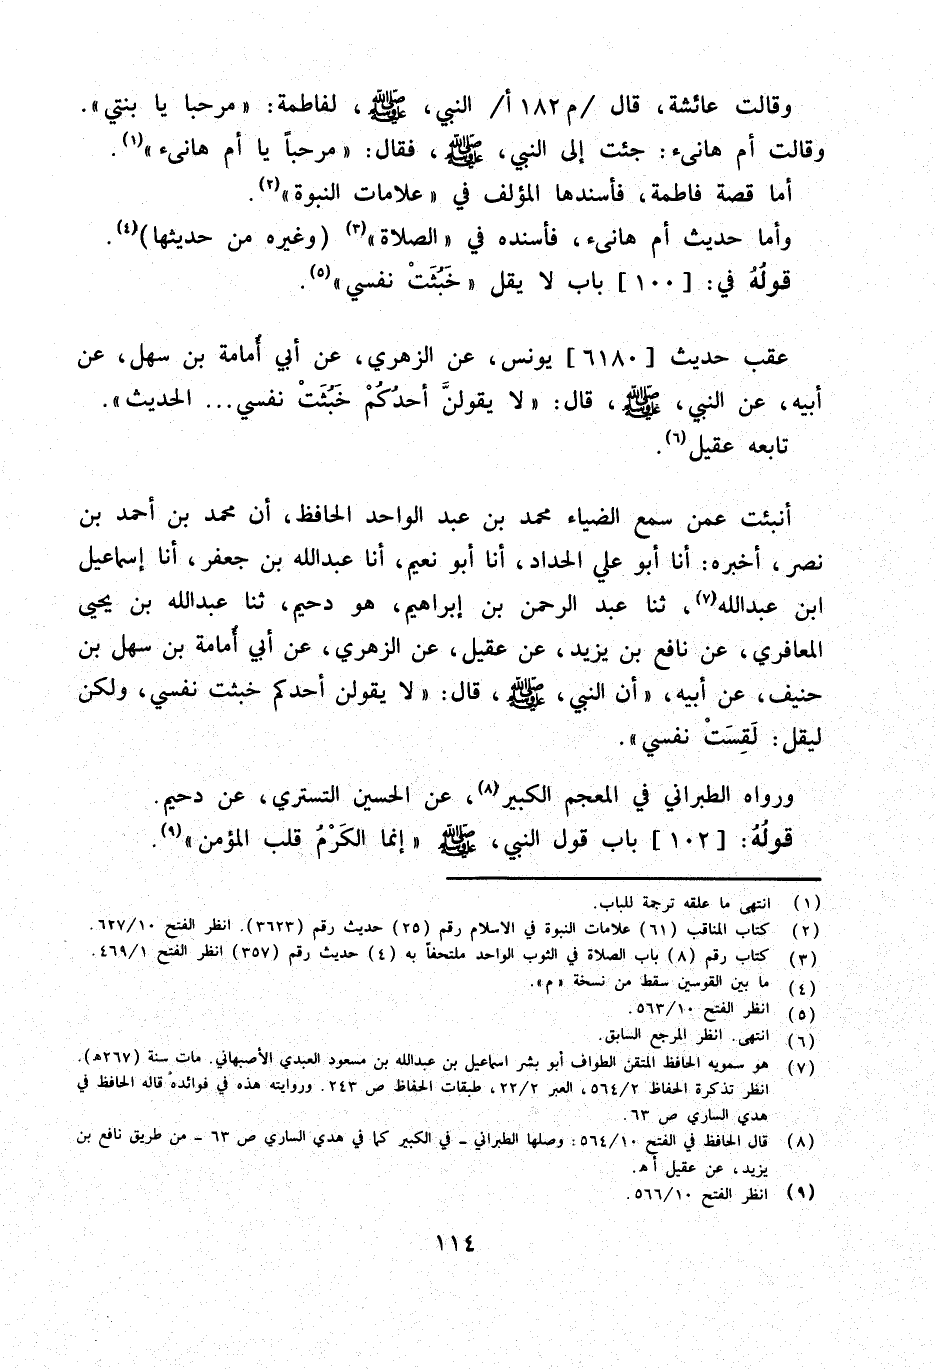 وقالت عائشة، قال /م ١٨٢ أ/ النبي، ﷺ، لفاطمة: «مرحبا يا بنتي».
وقالت أم هانىء: جئت إلى النبي، ﷺ، فقال: «مرحباً يا أم هانىء»(١).
أما قصة فاطمة، فأسندها المؤلف في «علامات النبوة»(٢).
وأما حديث أم هانىء، فأسنده في «الصلاة»(٣) (وغيره من حديثها)(٤).
قولُهُ في: [١٠٠] باب لا يقل «خَبُثَتْ نفسي»(٥).
عقب حديث [٦١٨٠] يونس، عن الزهري، عن أبي أُمامة بن سهل، عن
أبيه، عن النبي، ﷺ، قال: «لا يقولنَّ أحدُكُمْ خَبُثَتْ نفسي... الحديث».
تابعه عقيل(٦).
أنبئت عمن سمع الضياء محمد بن عبد الواحد الحافظ، أن محمد بن أحمد بن
نصر، أخبره: أنا أبو علي الحداد، أنا أبو نعيم، أنا عبدالله بن جعفر، أنا إسماعيل
ابن عبدالله(٧)، ثنا عبد الرحمن بن إبراهيم، هو دحيم، ثنا عبدالله بن يحيى
المعافري، عن نافع بن يزيد، عن عقيل، عن الزهري، عن أبي أُمامة بن سهل بن
حنيف، عن أبيه، «أن النبي، ﷺ، قال: «لا يقولن أحدكم خبثت نفسي، ولكن
ليقل: لَقِسَتْ نفسي».
ورواه الطبراني في المعجم الكبير(٨)، عن الحسين التستري، عن دحيم.
قولُهُ: [١٠٢] باب قول النبي، ﷺ «إنما الكَرْمُ قلب المؤمن»(٩).
(١) انتهى ما علقه ترجمة للباب.
(٢) كتاب المناقب (٦١) علامات النبوة في الاسلام رقم (٢٥) حديث رقم (٣٦٢٣). انظر الفتح ٦٢٧/١٠.
(٣) كتاب رقم (٨) باب الصلاة في الثوب الواحد ملتحفاً به (٤) حديث رقم (٣٥٧) انظر الفتح ٤٦٩/١.
(٤) ما بين القوسين سقط من نسخة «م».
(٥) انظر الفتح ٥٦٣/١٠.
(٦) انتهى. انظر المرجع السابق.
(٧) هو سمويه الحافظ المتقن الطواف أبو بشر اسماعيل بن عبدالله بن مسعود العبدي الأصبهاني. مات سنة (٢٦٧ه).
انظر تذكرة الحفاظ ٥٦٤/٢، العبر ٢٢/٢، طبقات الحفاظ ص ٢٤٣. وروايته هذه في فوائده قاله الحافظ في
هدي الساري ص ٦٣.
(٨) قال الحافظ في الفتح ٥٦٤/١٠: وصلها الطبراني - في الكبير كما في هدي الساري ص ٦٣ - من طريق نافع بن
يزيد، عن عقيل أ ه.
(٩) انظر الفتح ٥٦٦/١٠.
١١٤